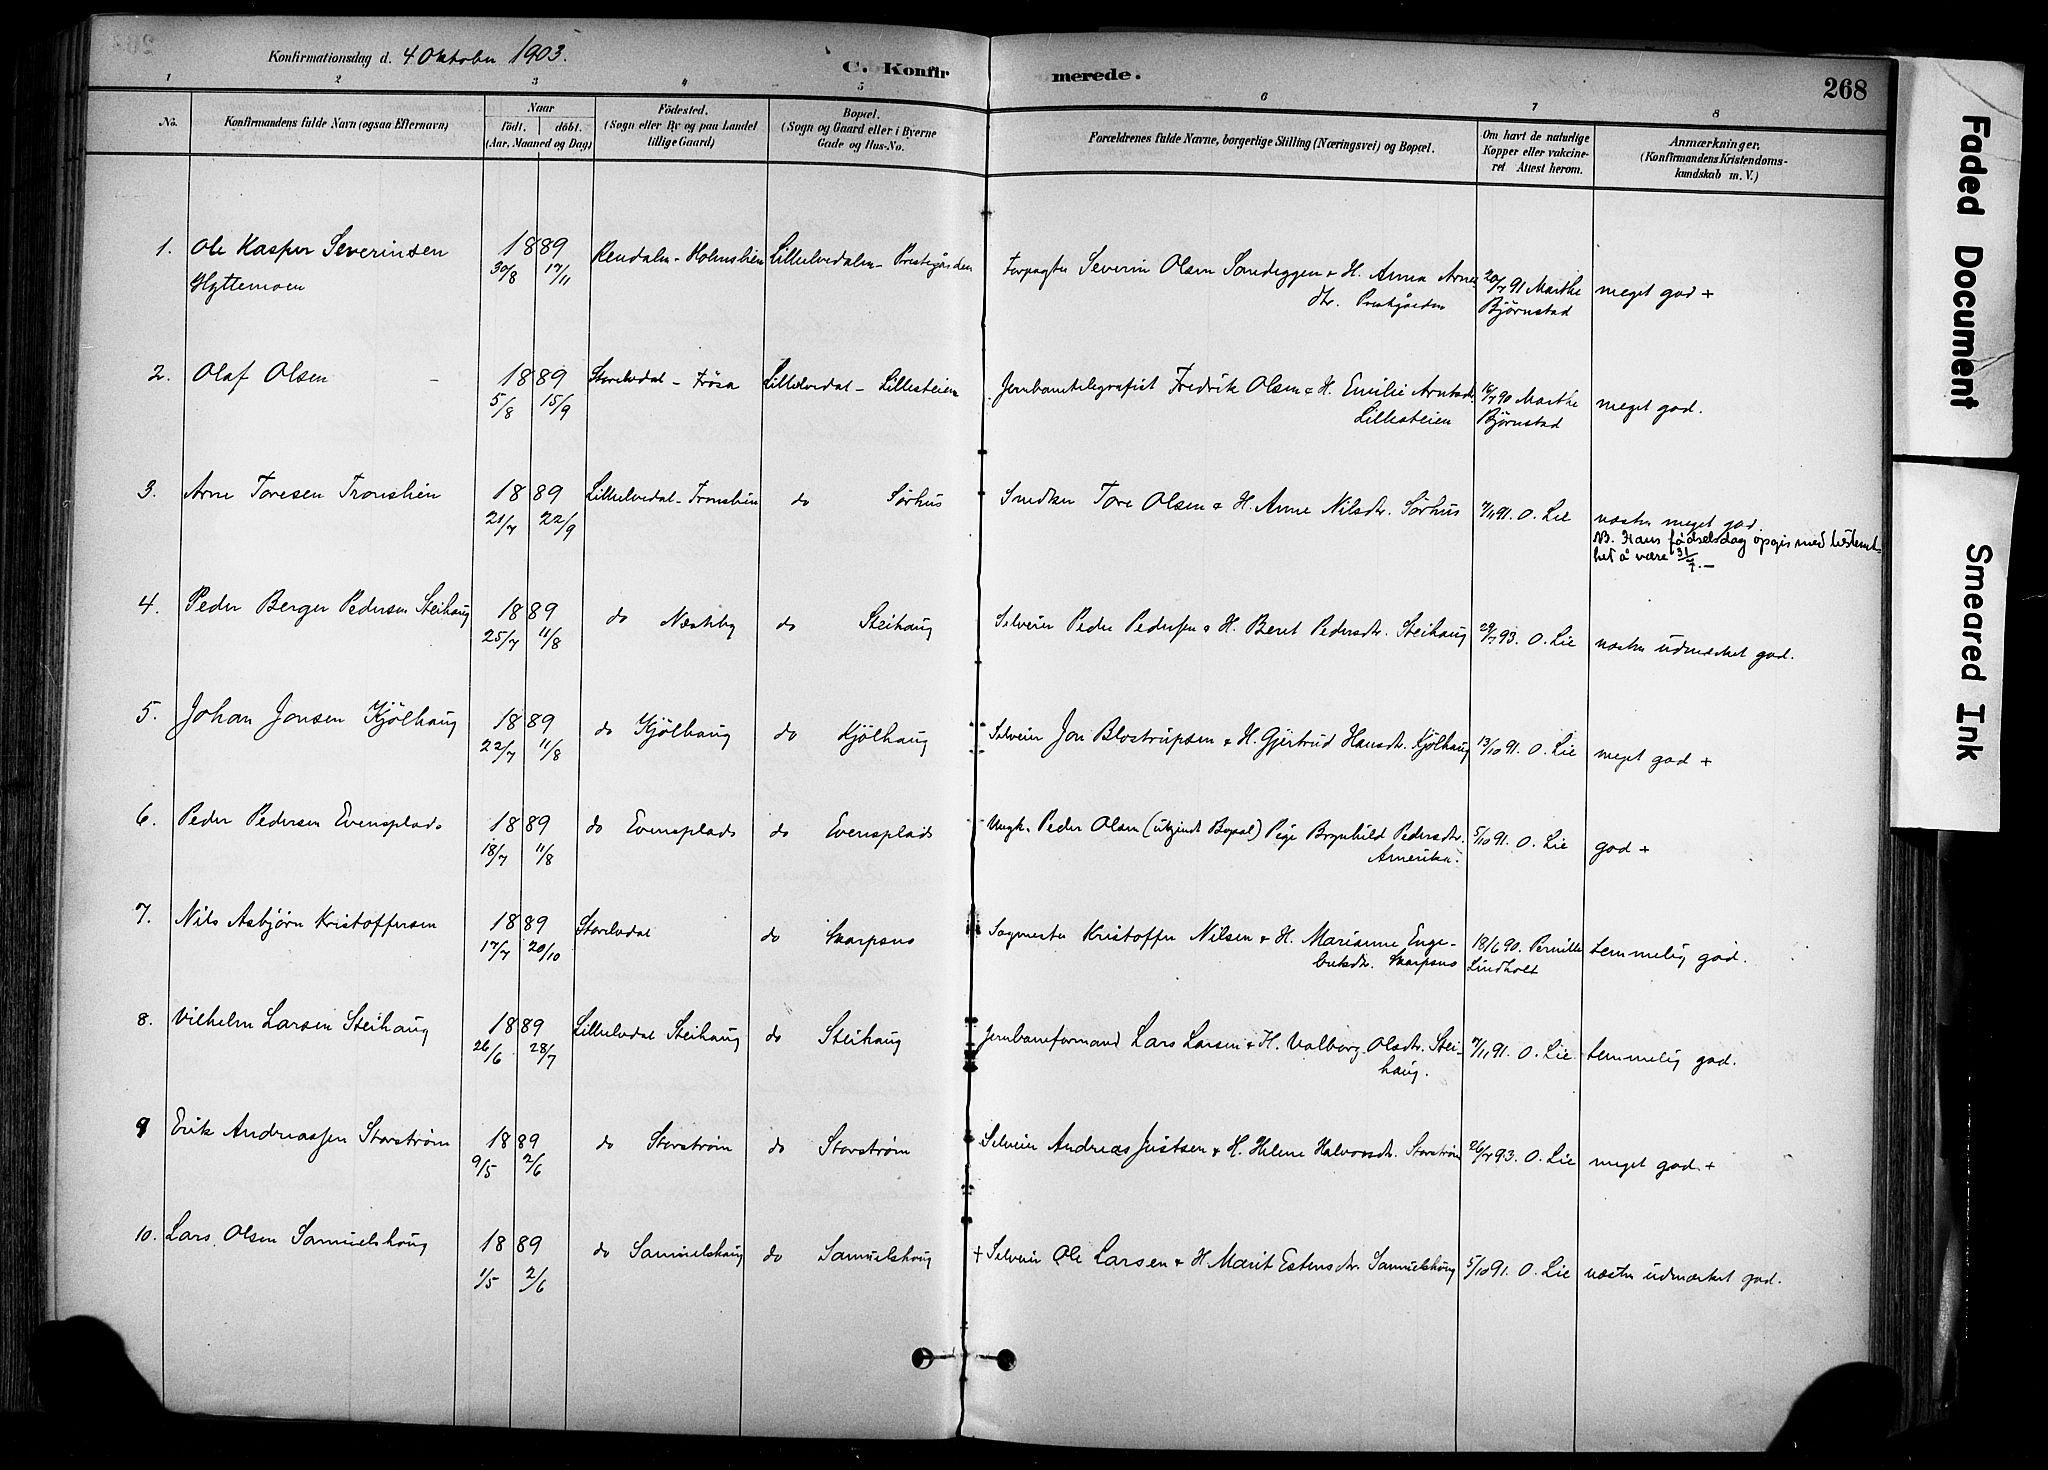 Konfirmationsdag d. 4 Oktober 1903.
C. Konfirmerede.
268
1 2 3 4 5 6 7 8
No.
Konfirmandens fulde Navn (ogsaa Efternavn)
Naar
födt. döbt.
(Aar, Maaned og Dag)
Födested.
(Sogn eller By og paa Landet
tillige Gaard)
Bopæl.
(Sogn og Gaard eller i Byerne
Gade og Hus-No.
Forældrenes fulde Navne, borgerlige Stilling (Næringsvei) og Bopæl.
Om havt de naturlige
Kopper eller vakcine-
ret Attest herom.
Anmærkninger.
(Konfirmandens Kristendoms-
kundskab m. V.)
1. Ole Kasper Severinsen 1889 Rendalen - Holmslien Lilleelvedalen - Prestegården Forpagter Severin Olsen Sandeggen & H. Anna Arnes 20/7 91 Marthe meget god +
Hyttemoen 30/8 17/11 dtr. Prestgården Bjørnstad
2. Olaf Olsen 1889 Storelvedal - Trösa Lilleelvedal - Lillesteien Jernbanetelegrafist Fredrik Olsen & H. Emilie Arntsdr. 16/7 90 Marthe meget god.
5/8 15/9 Lillesteien Bjørnstad
3. Arne Toresen Tronslien 1889 Lilleelvedal - Tronslien do Sørhus Snedker Tore Olsen & H. Anne Nilsdr. Sørhus 7/11 91. O. Lie næsten meget god.
21/7 22/9 NB. Hans födselsdag opgis med bestemt-
het å være 31/7. -
4. Peder Berger Pedersen Steihaug 1889 do Næsteby do Steihaug Selveier Peder Pedersen & H. Beret Pedersdr. Steihaug 29/7 93. O. Lie næsten udmerket god.
25/7 11/8
5. Johan Jonsen Kjölhaug 1889 do Kjölhaug do Kjölhaug Selveier Jon Blostrupsen & H. Gjertrud Hansdr. Kjölhaug 13/10 91. O. Lie meget god +
22/7 11/8
6. Peder Pedersen Evensplads 1889 do Evensplads do Evensplads Ungk. Peder Olsen (ukjendt Bopæl) Pige Brynhild Pedersdtr. 5/10 91. O. Lie god +
18/7 11/8 Amerika.
7. Nils Asbjørn Kristoffersen 1889 Storelvdal do Skarpsno Sagmester Kristoffer Nilsen & H. Marianne Enge- 18/6 90. Pernille temmelig god.
17/7 20/10 bretsdr. Skarpsno Lindholt
8. Vilhelm Larsen Steihaug 1889 Lilleelvdal Steihaug do Steihaug Jernbaneformand Lars Larsen & H. Valborg Olsdtr. Stei- 7/11 91. O. Lie temmelig god.
26/6 28/7 haug.
9 Erik Andreassen Storstrøm 1889 do Storstrøm do Storstrøm Selveier Andreas Justsen & H. Helene Halvorsdr. Storstrøm 26/7 93. O. Lie meget god. +
9/5 2/6
10. Lars Olsen Samuelshaug 1889 do Samuelshaug do Samuelshaug + Selveier Ole Larsen & H. Marit Estensdtr. Samuelshaug 5/10 91. O. Lie næsten udmærket god.
1/5 2/6
Faded Document
Smeared Ink